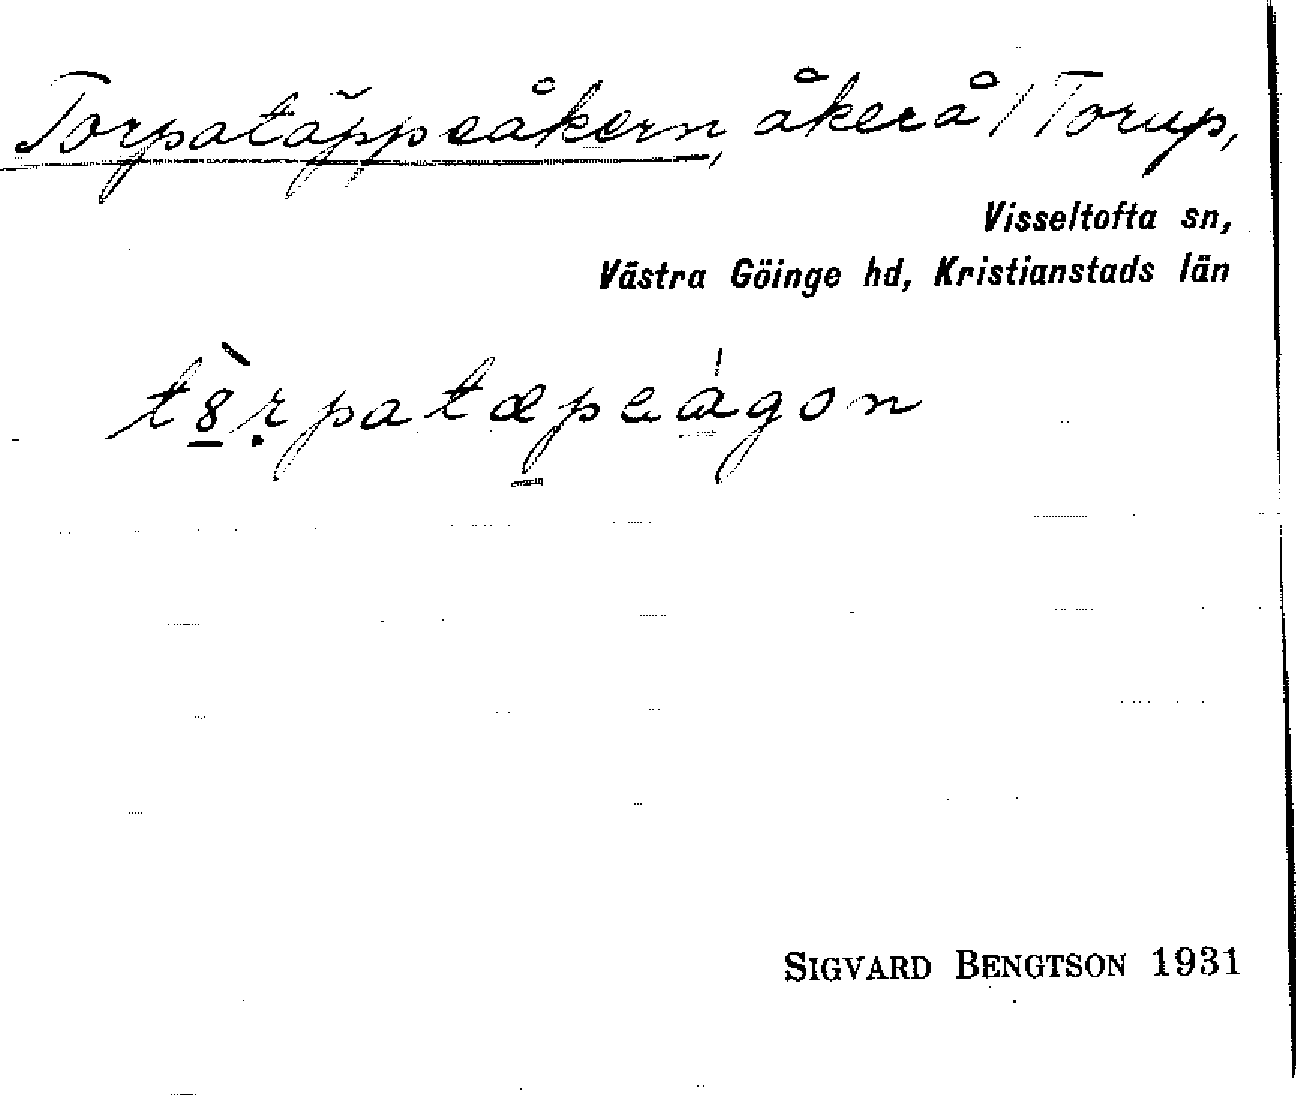 Torpatäppeåkern, åker å / Torup,
Visseltofta sn,
Västra Göinge hd, Kristianstads län
t8̀rpatæpeágon
SIGVARD BENGTSON 1931